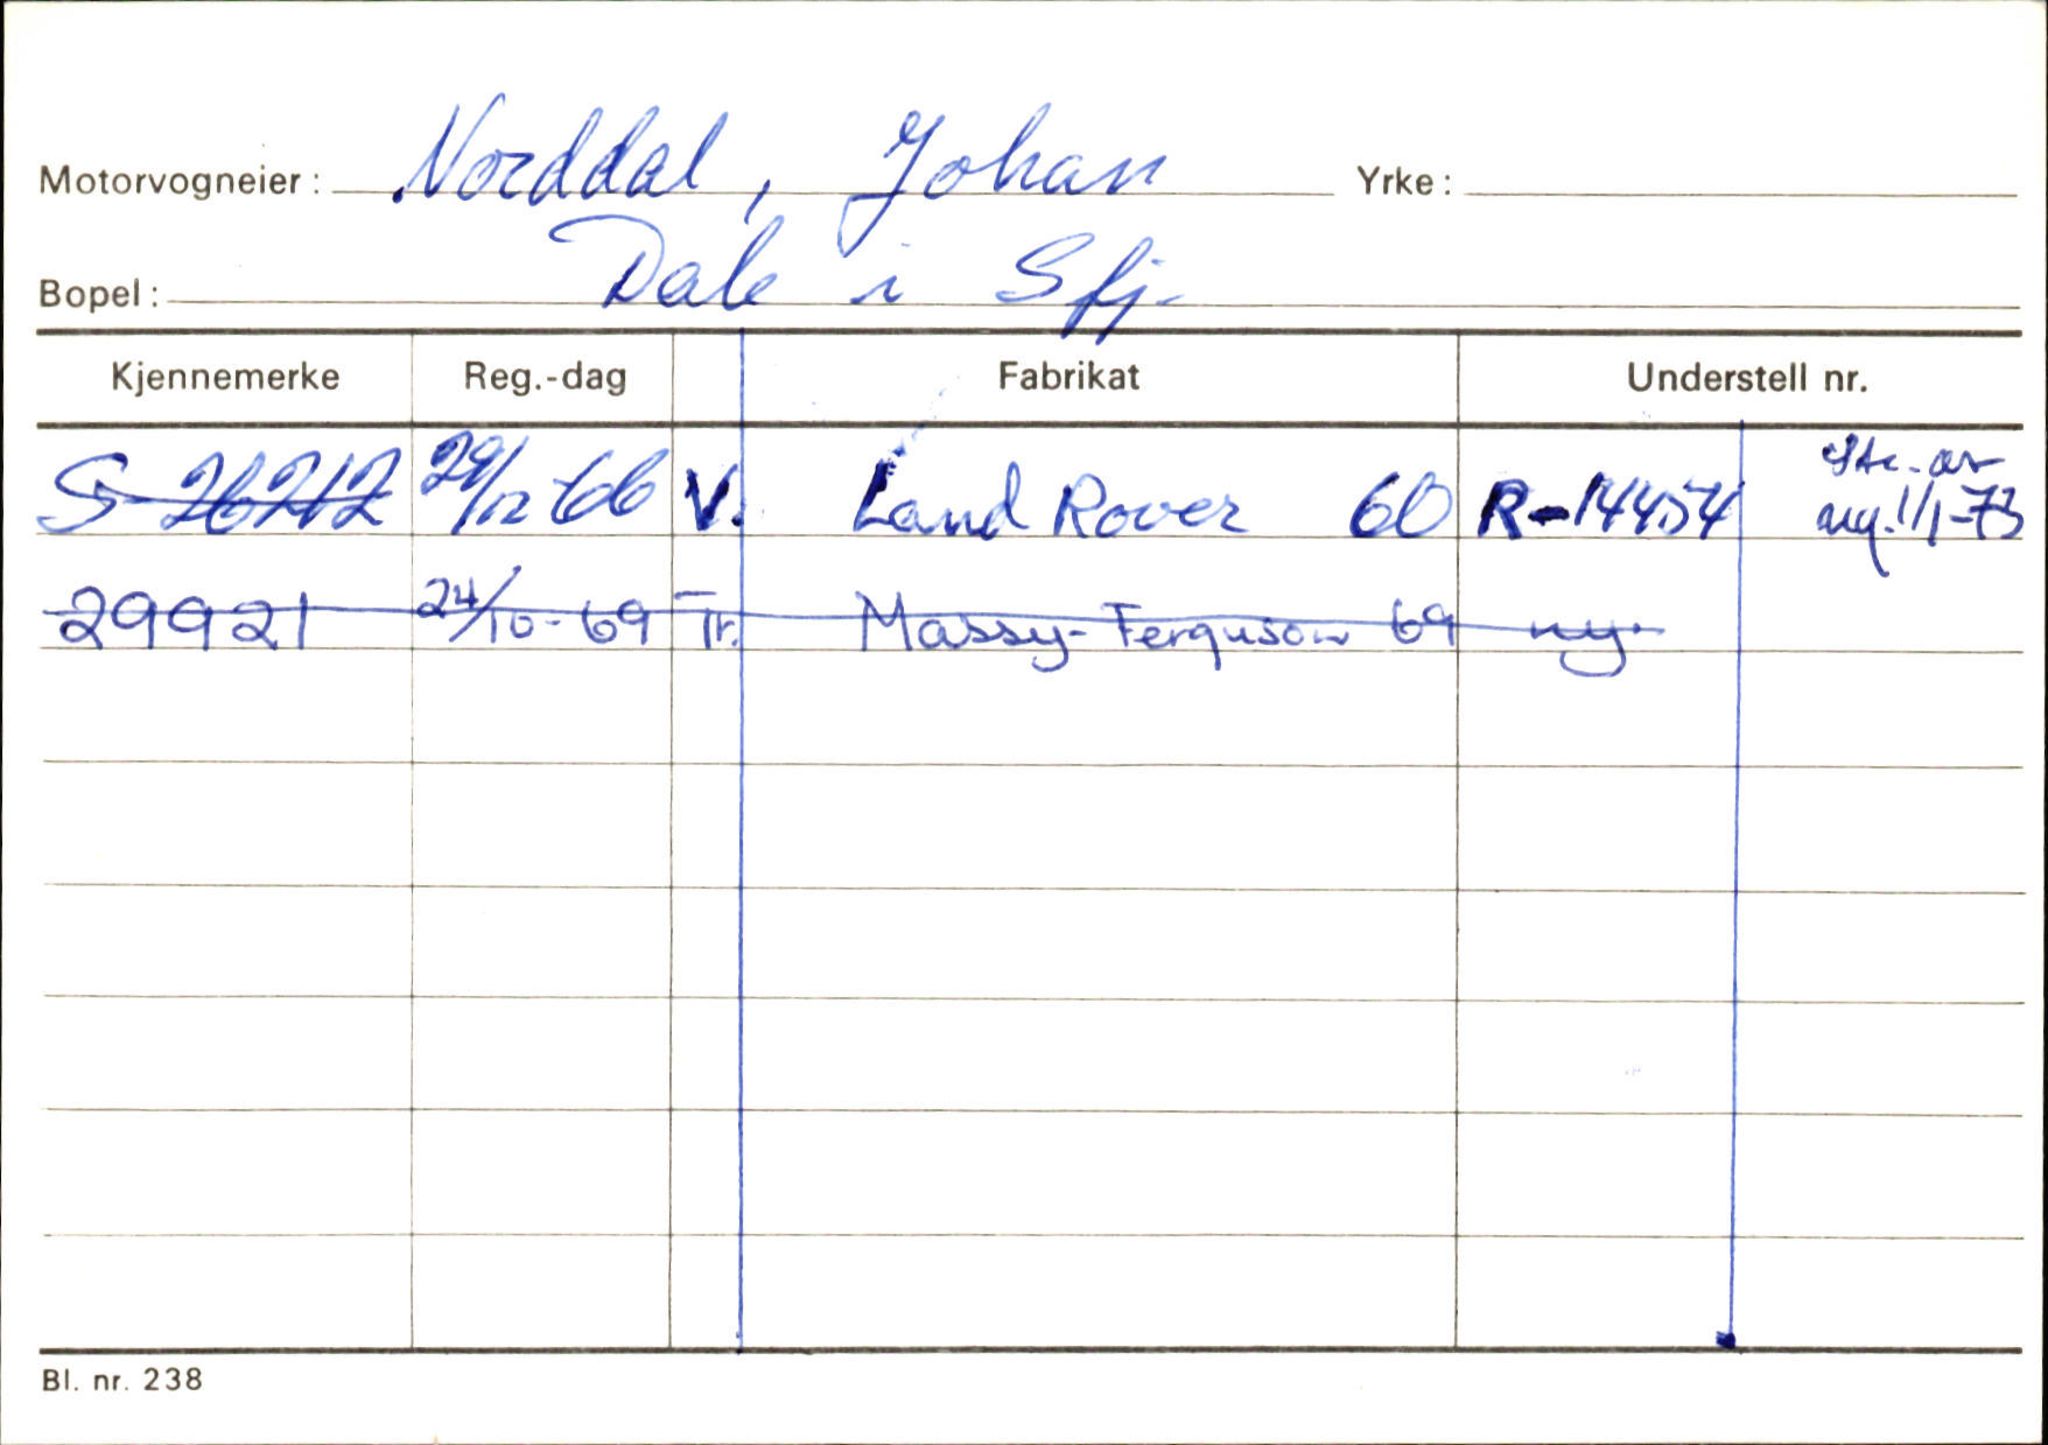 Motorvogneier: Norddal, Johan Yrke:
Bopel: Dale i Sfj.
Kjennemerke Reg.-dag Fabrikat Understell nr.
S-26212 29/12-66 V. Land Rover 60 R-14454 Str. av
reg. 1/1-73
29921 24/10-69 Tr. Massy-Ferguson 69 ny.
Bl. nr. 238